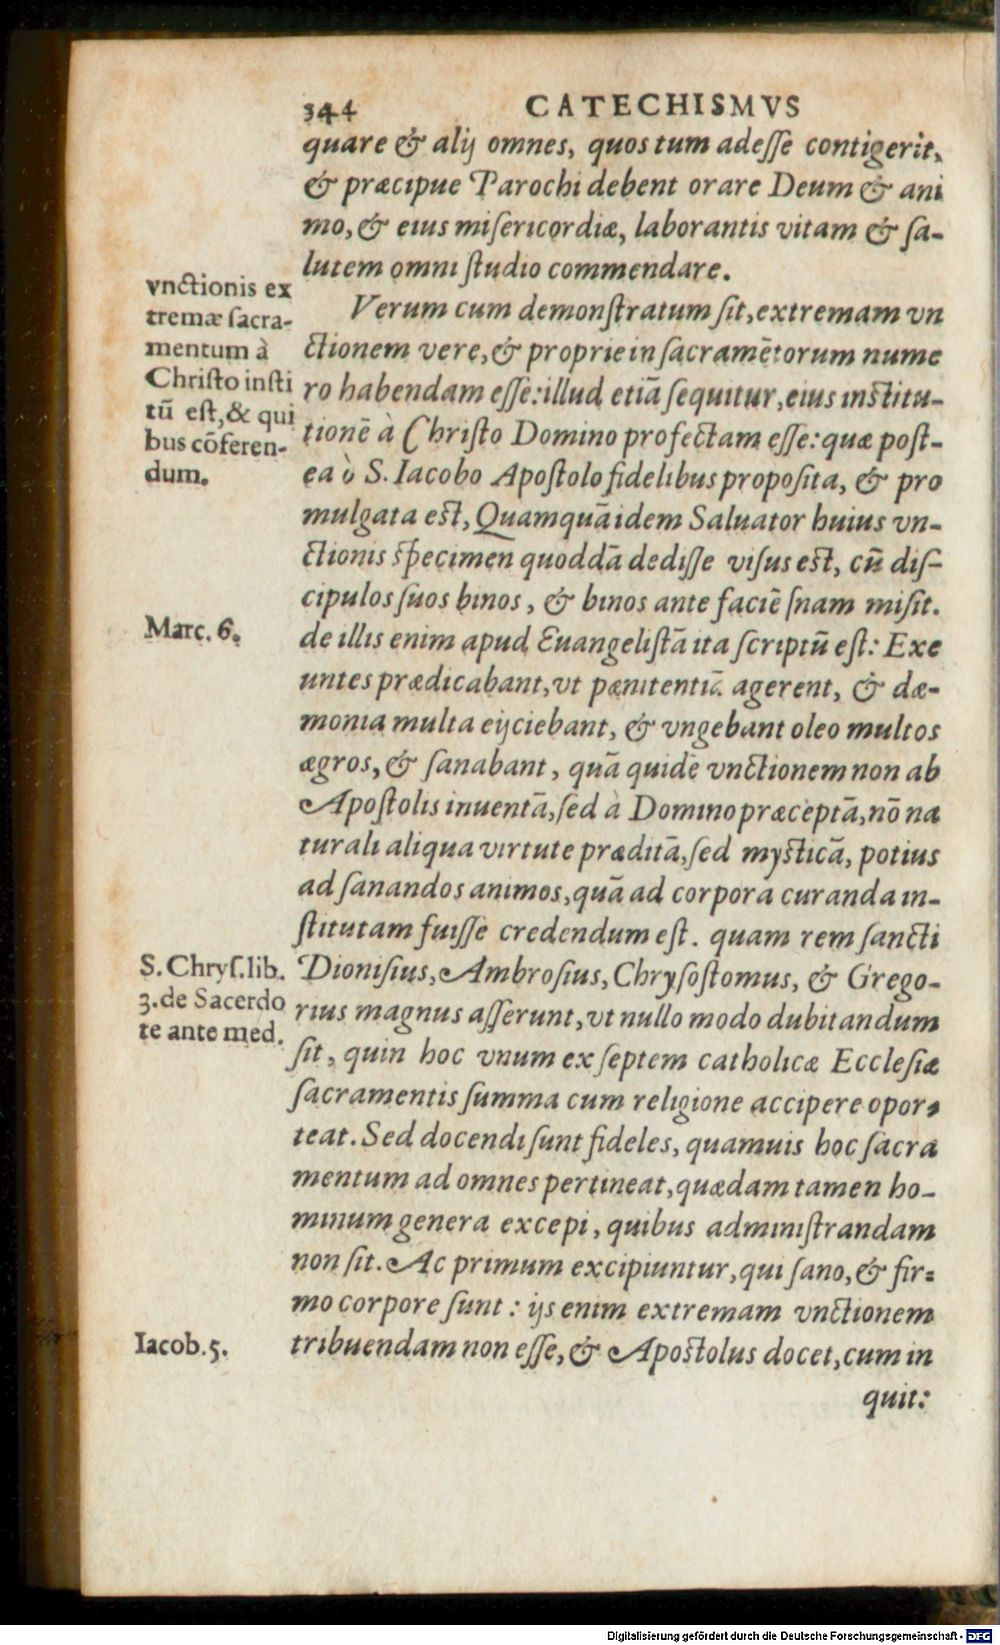 344 CATECHISMVS
quare & alij omnes, quos tum adesse contigerit,
& præcipue Parochi debent orare Deum & ani
mo, & eius misericordiæ, laborantis vitam & sa-
lutem omni studio commendare.
vnctionis ex
tremæ sacra-
mentum à
Christo insti
tū est, & qui
bus cōferen-
dum.
Verum cum demonstratum sit, extremam vn
ctionem vere, & proprie in sacramētorum nume
ro habendam esse: illud etiā sequitur, eius institu-
tionē à Christo Domino profectam esse: quæ post-
ea ò S. Iacobo Apostolo fidelibus proposita, & pro
mulgata est, Quamquā idem Saluator huius vn-
ctionis specimen quoddā dedisse visus est, cū dis-
cipulos suos binos, & binos ante faciē snam misit.
Marc. 6.
de illis enim apud Euangelistā ita scriptū est: Exe
untes prædicabant, vt pænitentiā agerent, & dæ-
monia multa eijciebant, & vngebant oleo multos
ægros, & sanabant, quā quidē vnctionem non ab
Apostolis inuentā, sed à Domino præceptā, nō na
turali aliqua virtute præditā, sed mysticā, potius
ad sanandos animos, quā ad corpora curanda in-
stitutam fuisse credendum est. quam rem sancti
S. Chrys. lib.
3. de Sacerdo
te ante med.
Dionisius, Ambrosius, Chrysostomus, & Grego-
rius magnus asserunt, vt nullo modo dubitandum
sit, quin hoc vnum ex septem catholicæ Ecclesiæ
sacramentis summa cum religione accipere opor-
teat. Sed docendi sunt fideles, quamuis hoc sacra
mentum ad omnes pertineat, quædam tamen ho-
minum genera excepi, quibus administrandam
non sit. Ac primum excipiuntur, qui sano, & fir-
mo corpore sunt: ijs enim extremam vnctionem
Iacob. 5.
tribuendam non esse, & Apostolus docet, cum in
quit:
Digitalisierung gefördert durch die Deutsche Forschungsgemeinschaft - DFG